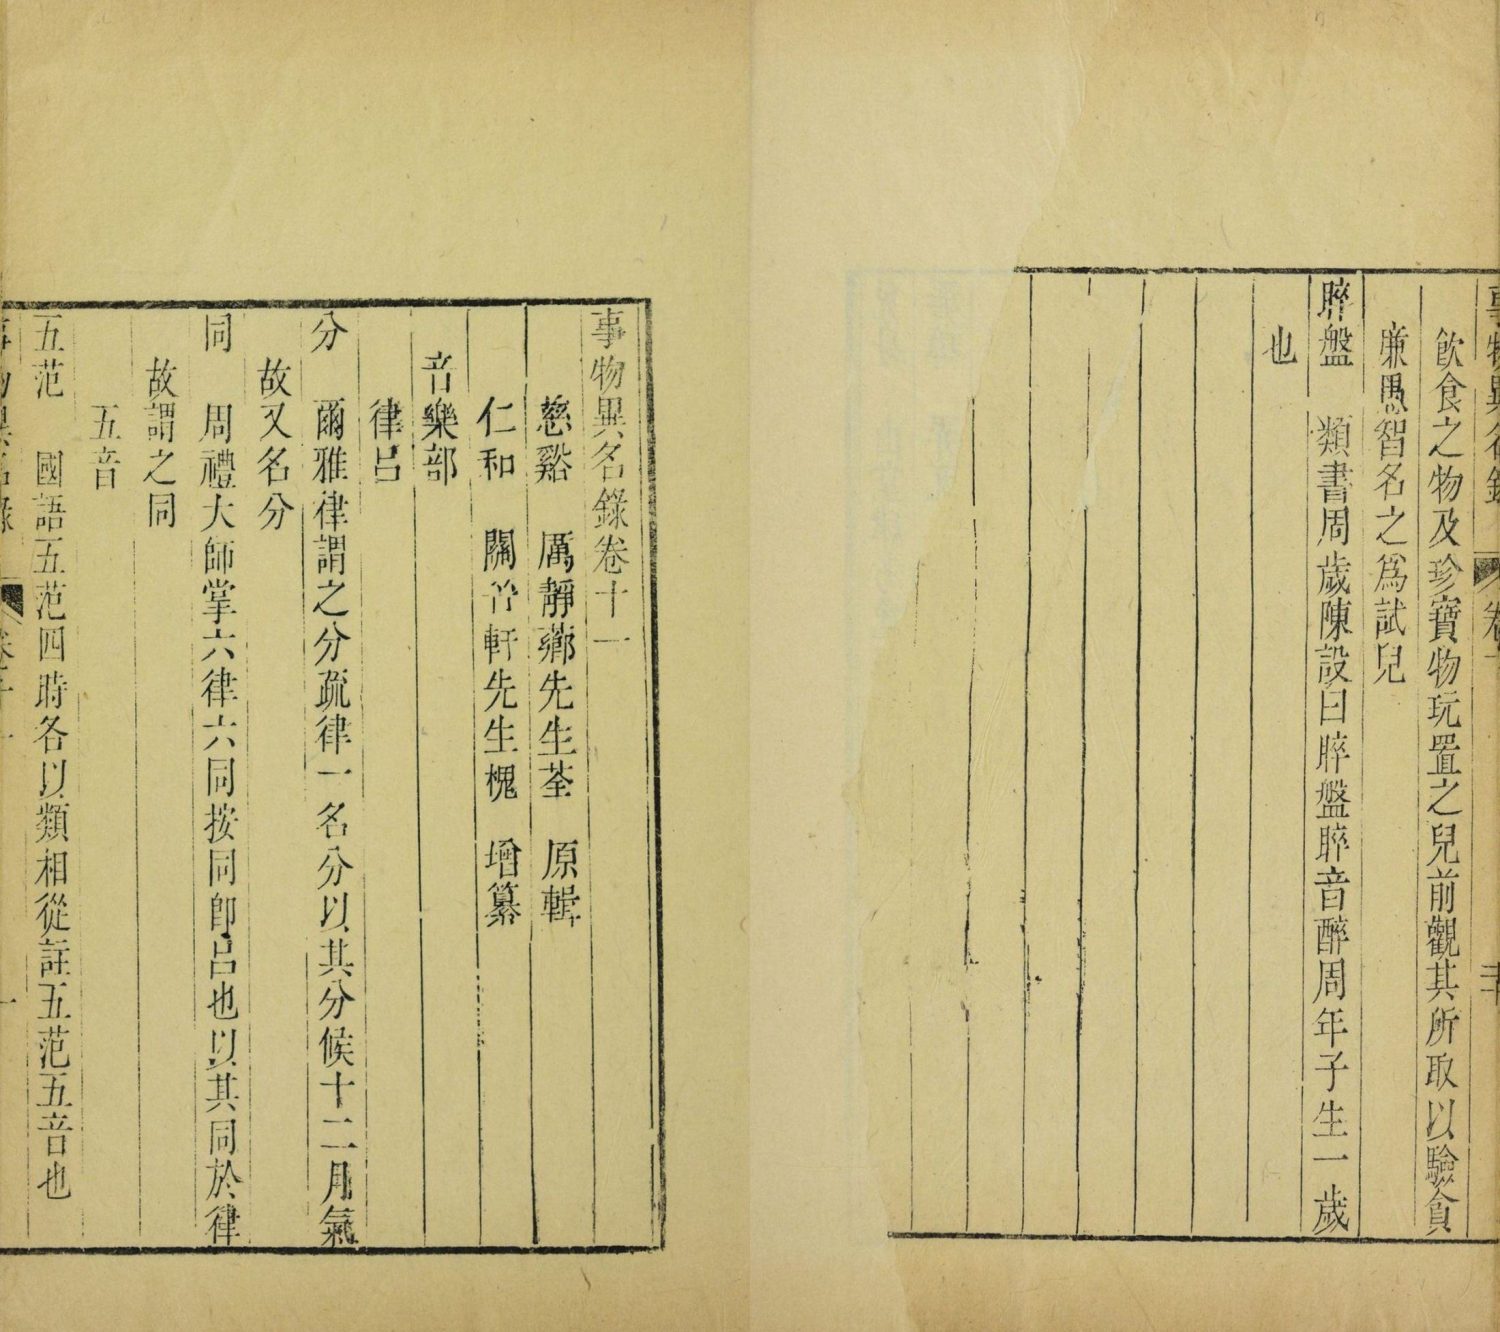 事物異名錄 卷十
飲食之物及珍寶物玩置之兒前觀其所取以驗貪
廉愚智名之爲試兒
晬盤 類書周歲陳設曰晬盤晬音醉周年子生一歲
也
事物異名錄卷十一
慈谿 厲靜薌先生荃 原輯
仁和 關晉軒先生槐 增纂
音樂部
律呂
分 爾雅律謂之分疏律一名分以其分候十二月氣
故又名分
同 周禮大師掌六律六同按同卽呂也以其同於律
故謂之同
五音
五范 國語五范四時各以類相從註五范五音也
事物異名錄 卷十一 一